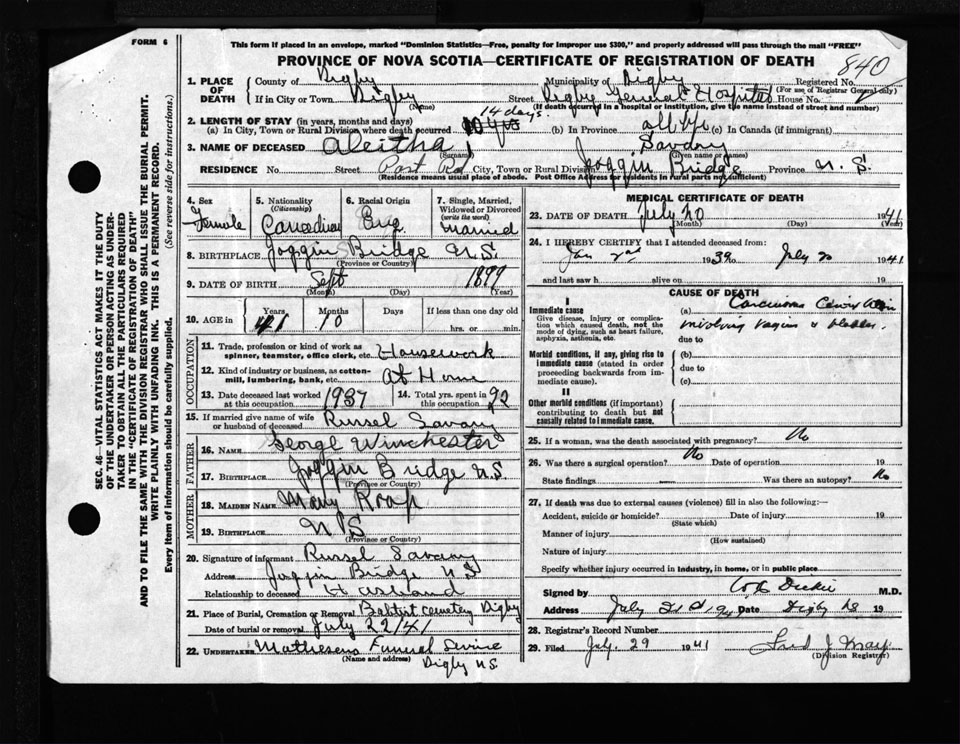 FORM 6
This form if placed in an envelope, marked "Dominion Statistics—Free, penalty for improper use $300," and properly addressed will pass through the mail "FREE"
PROVINCE OF NOVA SCOTIA—CERTIFICATE OF REGISTRATION OF DEATH
840
SEC. 46—VITAL STATISTICS ACT MAKES IT THE DUTY
OF THE UNDERTAKER OR PERSON ACTING AS UNDER-
TAKER TO OBTAIN ALL THE PARTICULARS REQUIRED
IN THE "CERTIFICATE OF REGISTRATION OF DEATH"
AND TO FILE THE SAME WITH THE DIVISION REGISTRAR WHO SHALL ISSUE THE BURIAL PERMIT.
WRITE PLAINLY WITH UNFADING INK. THIS IS A PERMANENT RECORD.
Every item of information should be carefully supplied. (See reverse side for instructions.)
1. PLACE OF DEATH
County of Digby Municipality of Digby Registered No.
(For use of Registrar General only)
If in City or Town Digby Street Digby General Hospital House No.
(Name) (If death occurred in a hospital or institution, give the name instead of street and number)
2. LENGTH OF STAY (in years, months and days) 14 days.
(a) In City, Town or Rural Division where death occurred (b) In Province all life (c) In Canada (if immigrant)
3. NAME OF DECEASED Aleitha Savary
(Surname) (Given name or names)
RESIDENCE No. Street Post Rd City, Town or Rural Division Joggin Bridge Province N. S.
(Residence means usual place of abode. Post Office Address for residents in rural parts not sufficient)
4. Sex Female
5. Nationality (Citizenship) Canadian
6. Racial Origin
7. Single, Married, Widowed or Divorced (write the word) Married
8. BIRTHPLACE Joggin Bridge N.S.
(Province or Country)
9. DATE OF BIRTH Sept 1899
(Month) (Day) (Year)
10. AGE in Years 41 Months 10 Days If less than one day old hrs. or min.
OCCUPATION
11. Trade, profession or kind of work as spinner, teamster, office clerk, etc. Housework
12. Kind of industry or business, as cotton-mill, lumbering, bank, etc. At Home
13. Date deceased last worked at this occupation 1937
14. Total yrs. spent in this occupation 22
15. If married give name of wife or husband of deceased Russel Savary
FATHER
16. NAME George Winchester
17. BIRTHPLACE Joggin Bridge N.S.
(Province or Country)
MOTHER
18. MAIDEN NAME Mary
19. BIRTHPLACE N S
(Province or Country)
20. Signature of informant Russel Savary
Address Joggin Bridge N S
Relationship to deceased Husband
21. Place of Burial, Cremation or Removal Babtist Cemetery Digby
Date of burial or removal July 22/41
22. UNDERTAKER Mathesens Funeral Service
(Name and address) Digby N.S.
MEDICAL CERTIFICATE OF DEATH
23. DATE OF DEATH July 20 1941
(Month) (Day) (Year)
24. I HEREBY CERTIFY that I attended deceased from:
Jan 2nd 1939 to July 20 1941
and last saw h alive on 19
CAUSE OF DEATH
I
Immediate cause
Give disease, injury or complication which caused death, not the mode of dying, such as heart failure, asphyxia, asthenia, etc.
(a) Carcinoma
involving vagina & bladder.
due to
Morbid conditions, if any, giving rise to immediate cause (stated in order proceeding backwards from immediate cause).
(b)
due to
(c)
II
Other morbid conditions (if important) contributing to death but not causally related to immediate cause.
25. If a woman, was the death associated with pregnancy? No
26. Was there a surgical operation? No Date of operation 19
State findings Was there an autopsy? No
27. If death was due to external causes (violence) fill in also the following:—
Accident, suicide or homicide? Date of injury 19
(State which)
Manner of injury
(How sustained)
Nature of injury
Specify whether injury occurred in industry, in home, or in public place
Signed by Dickie M.D.
Address July Date Digby NS 19
28. Registrar's Record Number
29. Filed July. 29 1941
(Division Registrar)